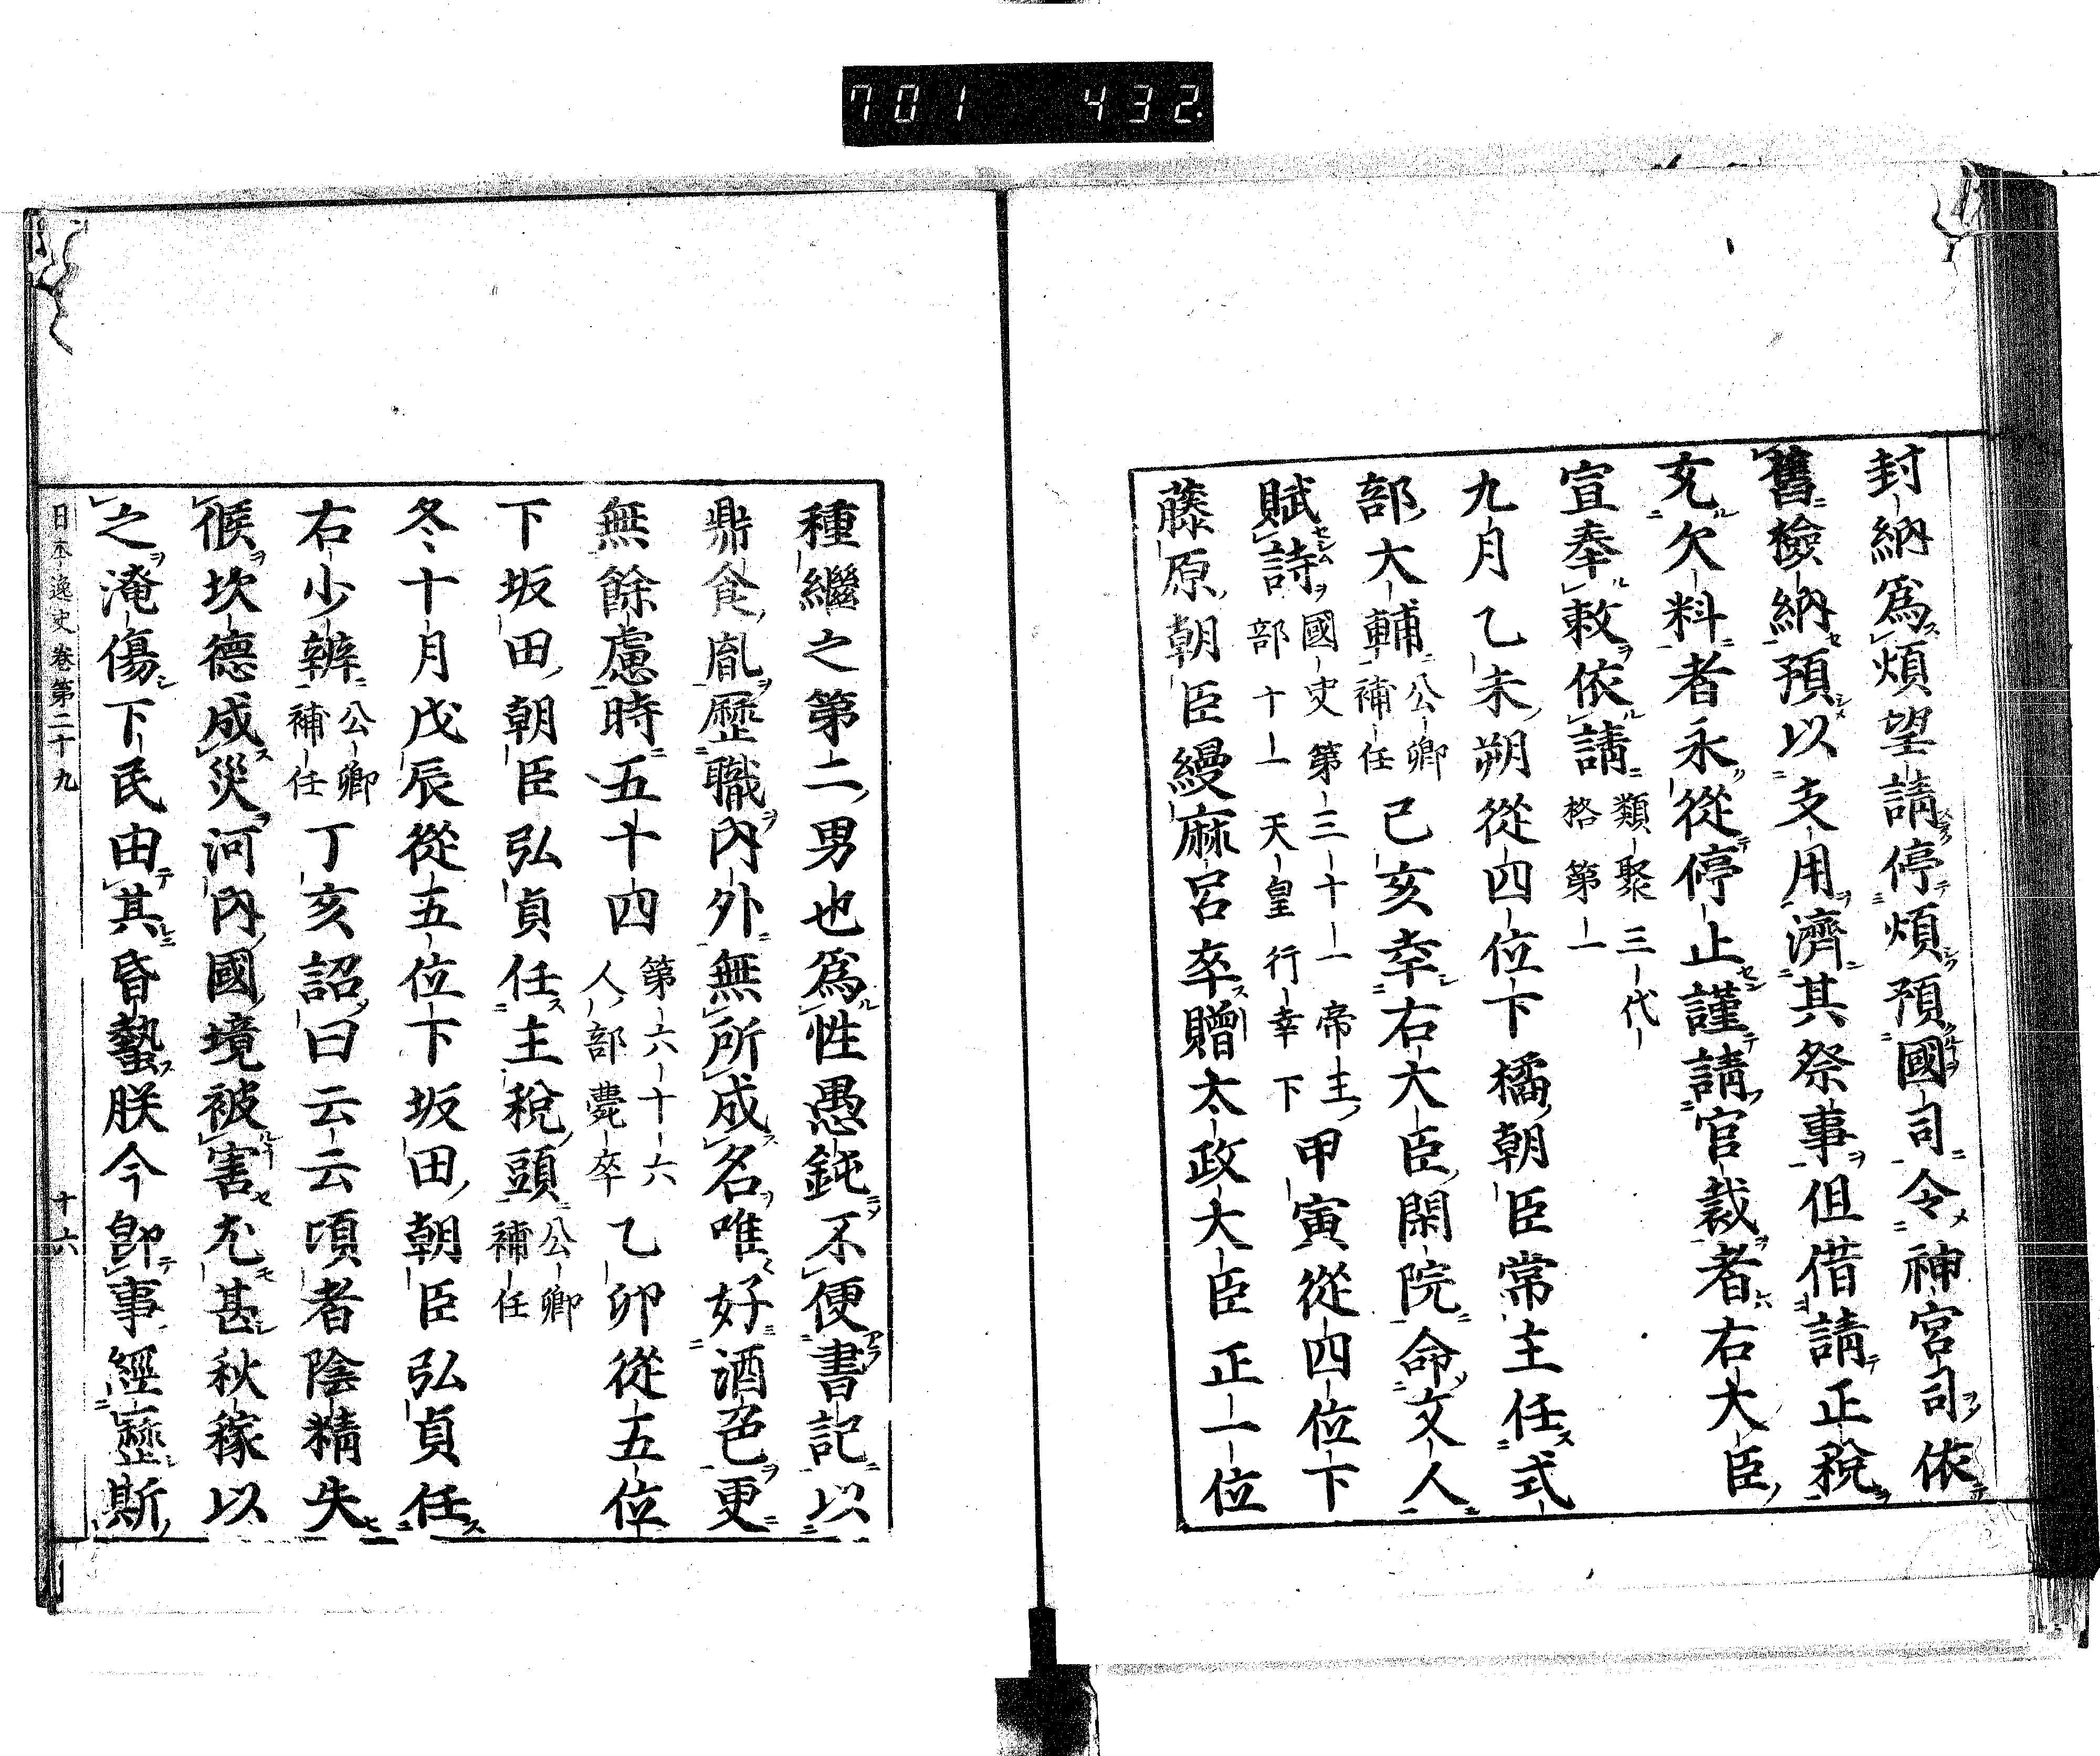 701 432
封納爲煩望請停煩預國司令神宮司依
舊檢納預以支用濟其祭事但借請正税
充欠料者永從停止謹請官裁者右大臣
宣奉敕依請類聚三代
格第一
九月乙未朔從四位下橘朝臣常主任式
部大輔公卿
補任己亥幸右大臣閑院命文人
賦詩國史第三十一帝王
部十一天皇行幸下甲寅從四位下
藤原朝臣縵麻呂卒贈太政大臣正一位
種繼之第二男也爲性愚鈍不便書記以
鼎食胤歷職內外無所成名唯好酒色更
無餘慮時五十四第六十六
人部薨卒乙卯從五位
下坂田朝臣弘貞任主税頭公卿
補任
冬十月戊辰從五位下坂田朝臣弘貞任
右少辨公卿
補任丁亥詔曰云云頃者陰精失
候坎德成災河內國境被害尤甚秋稼以
之淹傷下民由其昏墊朕今卽事經歷斯
日本逸史卷第二十九
十六